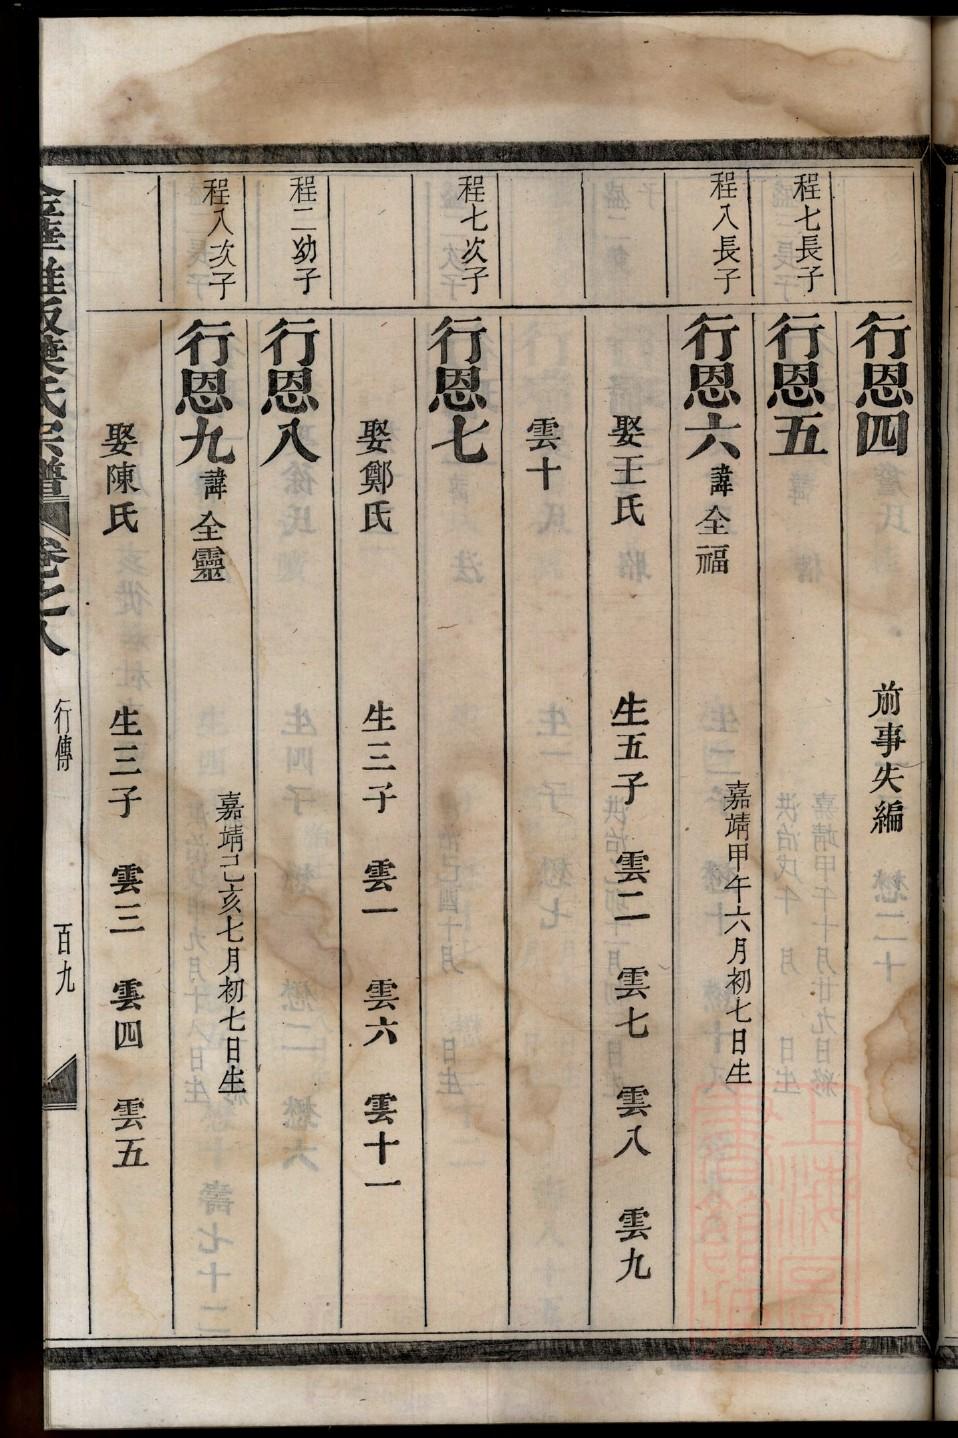 行恩四
前事失編
程七長子
行恩五
程八長子
行恩六 諱全福
嘉靖甲午六月初七日生
娶王氏 生五子 雲二 雲七 雲八 雲九
雲十
程七次子
行恩七
娶鄭氏 生三子 雲一 雲六 雲十一
程二幼子
行恩八
程八次子
行恩九 諱全靈
嘉靖己亥七月初七日生
娶陳氏 生三子 雲三 雲四 雲五
葉氏宗譜 卷之八 行傳 百九